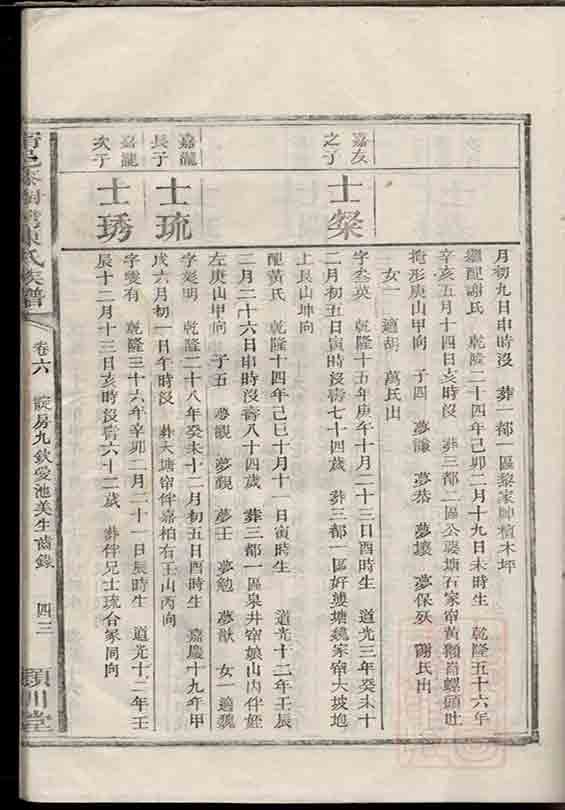 月初九日申時沒 葬一都一區黎家
繼配謝氏 乾隆二十四年己卯二月十九日未時生 乾隆五十六年
辛亥五月十四日亥時沒 葬三都二區公婆塘石家帘黃獺崙螺頭吐
掩形庚山甲向 子四 夢謙 夢恭 夢壤 夢保歿 謝氏出
女一 適胡 萬氏出
嘉友
之子
士粲
字粲英 乾隆十五年庚午十月二十三日酉時生 道光三年癸未十
二月初五日寅時沒壽七十四歲 葬三都一區好婆塘魏家帘大坡地
上艮山坤向
配黃氏 乾隆十四年己巳十月十一日寅時生 道光十二年壬辰
二月二十六日申時沒壽八十四歲 葬三都一區泉井帘娘山內伴姪
左庚山甲向 子五 夢觀 夢覲 夢壬 夢勉 夢猷 女一適魏
嘉瀧
長子
士琉
字冕明 乾隆二十八年癸未十二月初五日酉時生 嘉慶十九年甲
戌六月初一日午時沒 葬大塘帘伴嘉柏右壬山丙向
嘉瀧
次子
士琇
字雯有 乾隆三十六年辛卯二月二十一日辰時生 道光十二年壬
辰十二月十三日亥時沒壽六十二歲 葬伴兄士琉合冢同向
氏族譜
卷六
房九欽愛池美生齒錄
四三
潁川堂